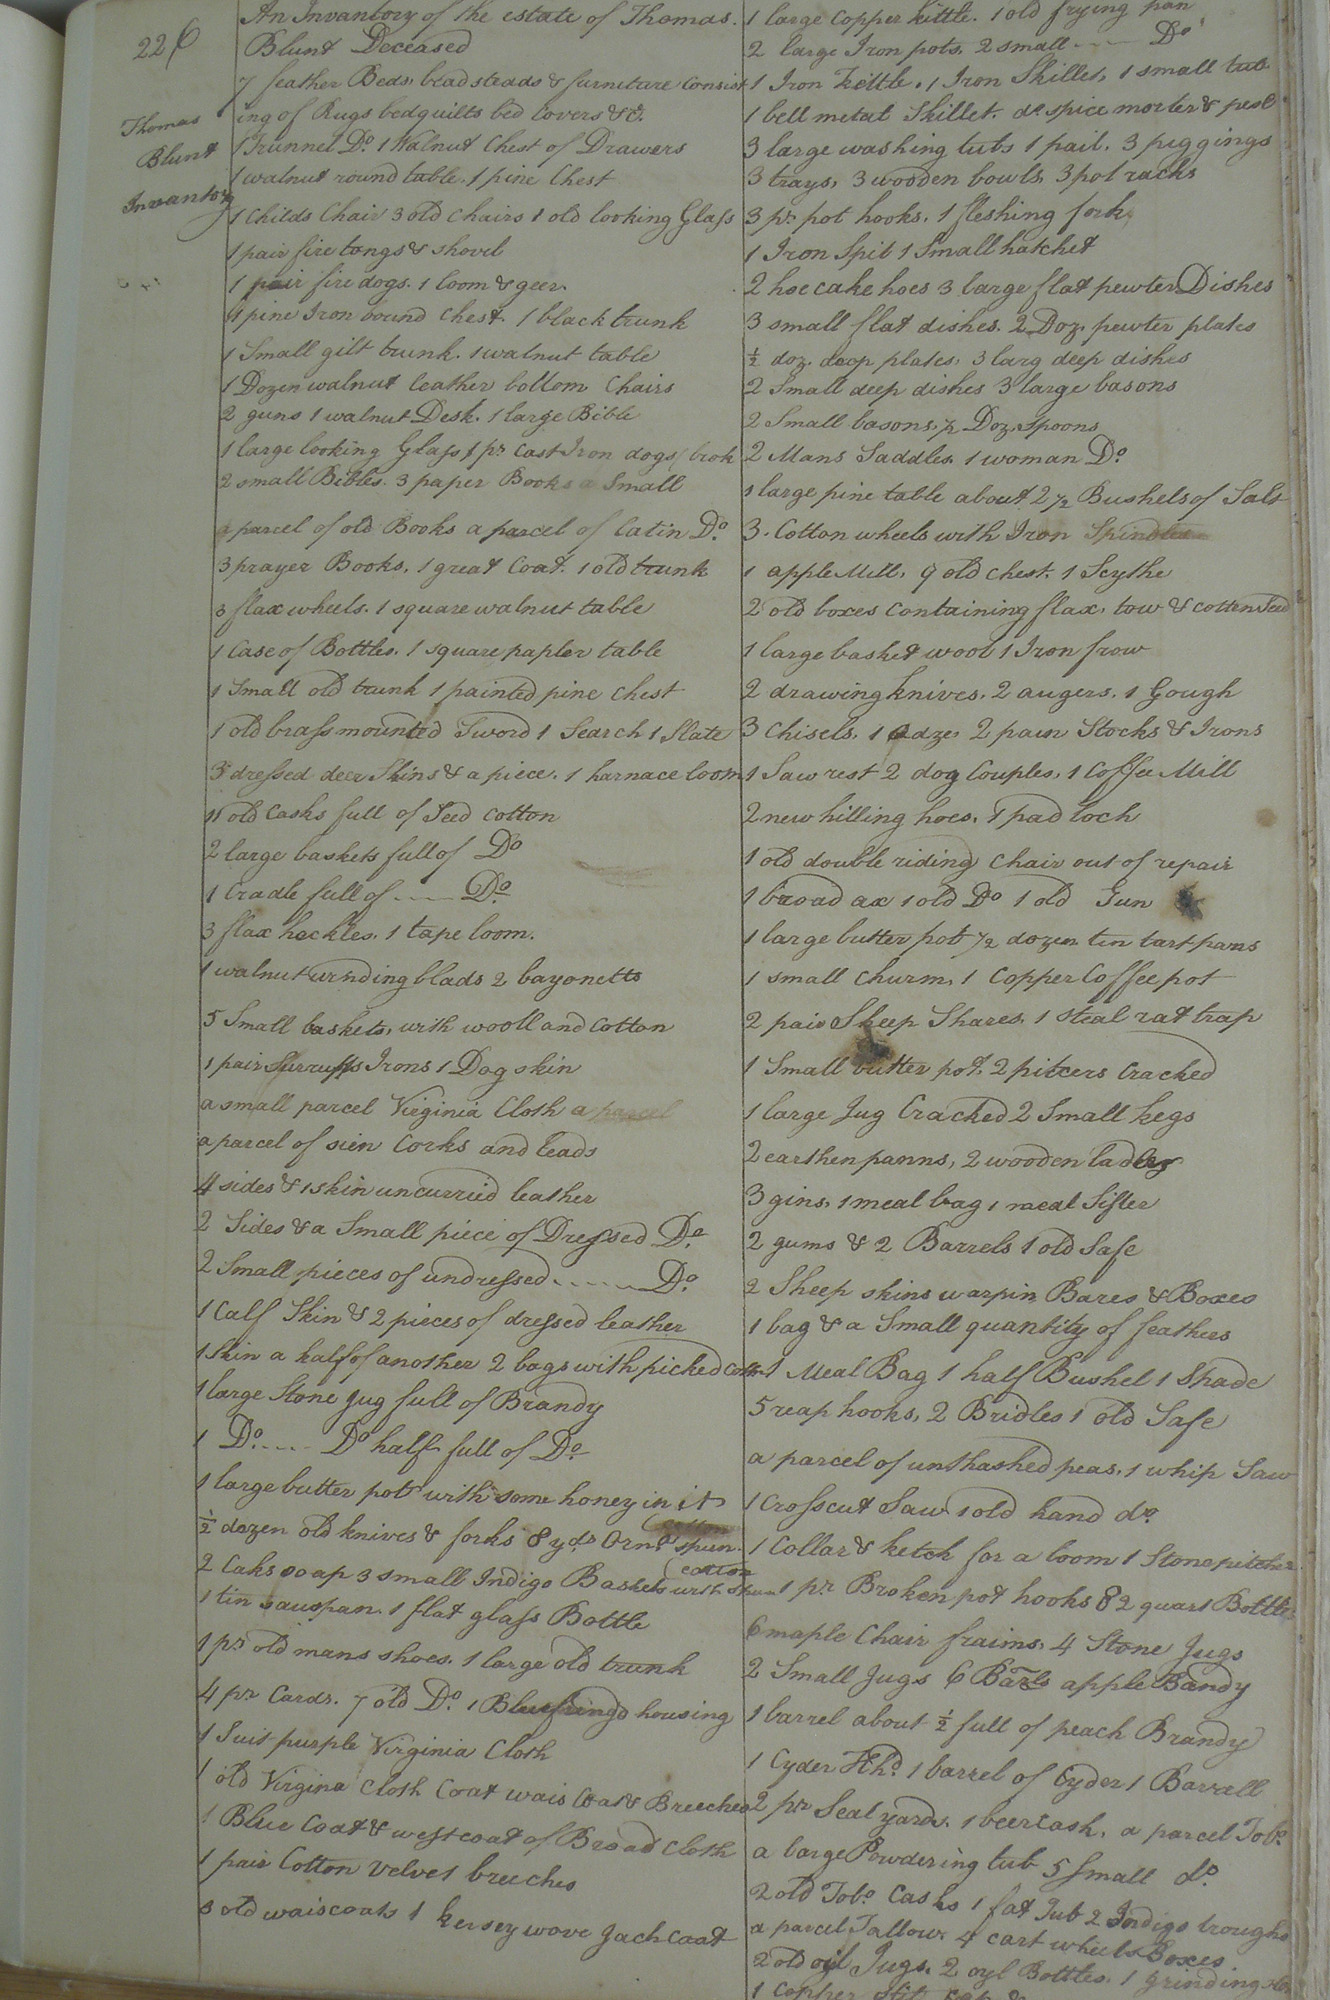 226
Thomas
Blunt
Invantory
An Invantory of the estate of Thomas
Blunt Deceased
7 feather Beds, beadsteads & furniture Consist
ing of Rugs bedquilts bed Covers &c.
1 Trunnel Do. 1 Walnut Chest of Drawers
1 walnut round table. 1 pine Chest
1 Childs Chair 3 old chairs 1 old looking Glass
1 pair fire tongs & shovel
1 pair fire dogs. 1 loom & geer.
1 pine Iron bound Chest. 1 black trunk
1 Small gilt trunk. 1 walnut table
1 Dozen walnut leather bottom Chairs
2 guns 1 walnut Desk. 1 large Bible
1 large looking Glass 1 pr. Cast Iron dogs brok
2 small Bibles. 3 paper Books a Small
a parcel of old Books a parcel of Latin Do.
3 prayer Books. 1 great Coat. 1 old trunk
3 flax wheels. 1 square walnut table
1 Case of Bottles. 1 square papler table
1 Small old trunk 1 painted pine Chest
1 old brass mounted Sword 1 Search 1 Slate
3 dressed deer Skins & a piece. 1 harnace loom
11 old Casks full of Seed Cotton
2 large baskets full of Do
1 Cradle full of ---- Do.
3 flax heckles. 1 tape loom.
1 walnut winding blads 2 bayonetts
5 Small baskets, with wooll and Cotton
1 pair Irons 1 Dog skin
a small parcel Virginia Cloth a parcel
a parcel of sien Corks and leads
4 sides & 1 skin uncurried leather
2 Sides & a Small piece of Dressed Do.
2 Small pieces of undressed ---- Do.
1 Calf Skin & 2 pieces of dressed leather
1 Skin a half of another 2 bags with picked Cotton
1 large Stone Jug full of Brandy
1 Do. ---- Do half full of Do.
1 large butter pot with some honey in it
½ dozen old knives & forks 8 yds Ornt. spun cotton
2 Caks soap 3 small Indigo Baskets with spun cotton
1 tin sauspan. 1 flat glass Bottle
1 pr. old mans shoes. 1 large old trunk
4 pr Cards. 7 old Do. 1 Blue fringd housing
1 Suit purple Virginia Cloth
1 old Virgina Cloth Coat wais Coat & Breeches
1 Blue Coat & westcoat of Broad Cloth
1 pair Cotton velvet breeches
3 old waiscoats 1 Kersey wove Jach Coat
1 large Copper Kittle. 1 old frying pan
2 large Iron pots, 2 small ---- Do
1 Iron Kettle. 1 Iron Skillet, 1 small tub
1 bell metal Skillet. do. spice morter & pesl
3 large washing tubs 1 pail. 3 piggings
3 trays, 3 wooden bowls, 3 pot racks
3 pr. pot hooks. 1 fleshing fork,
1 Iron Spit 1 Small hatchet
2 hoe cake hoes 3 large flat pewter Dishes
3 small flat dishes. 2 Doz. pewter plates
½ doz. deep plates. 3 larg deep dishes
2 Small deep dishes 3 large basons
2 Small basons, ½ Doz. spoons
2 Mans Saddles. 1 woman Do.
1 large pine table about 2 ½ Bushels of Salt
3. Cotton wheels with Iron Spindles
1 apple Mill, 9 old Chest. 1 Scythe
2 old boxes Containing flax, tow & cotten Seed
1 large basket wool 1 Iron frow
2 drawing knives. 2 augers. 1 Gough
3 Chisels. 1 adze, 2 pain Stocks & Irons
1 Saw rest 2 dog Couples. 1 Coffee Mill
2 new hilling hoes. 1 pad lock
1 old double riding Chair out of repair
1 broad ax 1 old Do 1 old Gun
1 large butter pot ½ dozen tin tart pans
1 small Churm, 1 Copper Coffee pot
2 pair Sheep Shares. 1 steal rat trap
1 Small butter pot. 2 pitcers Cracked
1 large Jug Cracked 2 Small kegs
2 earthen panns, 2 wooden ladles
3 gins, 1 meal bag 1 meal Sifter
2 gums & 2 Barrels 1 old Safe
2 Sheep skins warpin Bares & Boxes
1 bag & a Small quantity of feathers
1 Meal Bag 1 half Bushel 1 Spade
5 reap hooks, 2 Bridles 1 old Safe
a parcel of unthashed peas. 1 whip Saw
1 Crosscut Saw 1 old hand do.
1 Collar & ketch for a loom 1 Stone pitcher
1 pr Broken pot hooks 82 quart Bottles
6 maple Chair fraims, 4 Stone Jugs
2 Small Jugs 6 Barls apple Bandy
1 barrel about ½ full of peach Brandy
1 Cyder Hhd. 1 barrel of Cyder 1 Barrall
2 pr Sealyards, 1 beer Cask, a parcel Tobo.
a large Powdering tub 5 Small do.
2 old Tobo. Casks 1 fat Tub 2 Indigo troughs
a parcel Tallow 4 cart wheel Boxes
2 old oyl Jugs. 2 oyl Bottles. 1 grinding
1 Copper